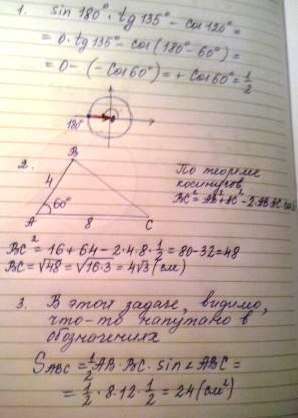 1. sin 180° · tg 135° - cos 120° =
= 0 · tg 135° - cos (180° - 60°) =
= 0 - (- cos 60°) = + cos 60° = 1/2
180°
2.
B
4
60°
A 8 C
По теореме
косинусов
BC² = AB² + AC² - 2·AB·AC·cos
BC² = 16 + 64 - 2·4·8·1/2 = 80 - 32 = 48
BC = √48 = √16·3 = 4√3 (см)
3. В этой задаче, видимо,
что-то напутано в
обозначениях
S ABC = 1/2 AB · BC · sin ∠ABC =
= 1/2 · 8 · 12 · 1/2 = 24 (см²)